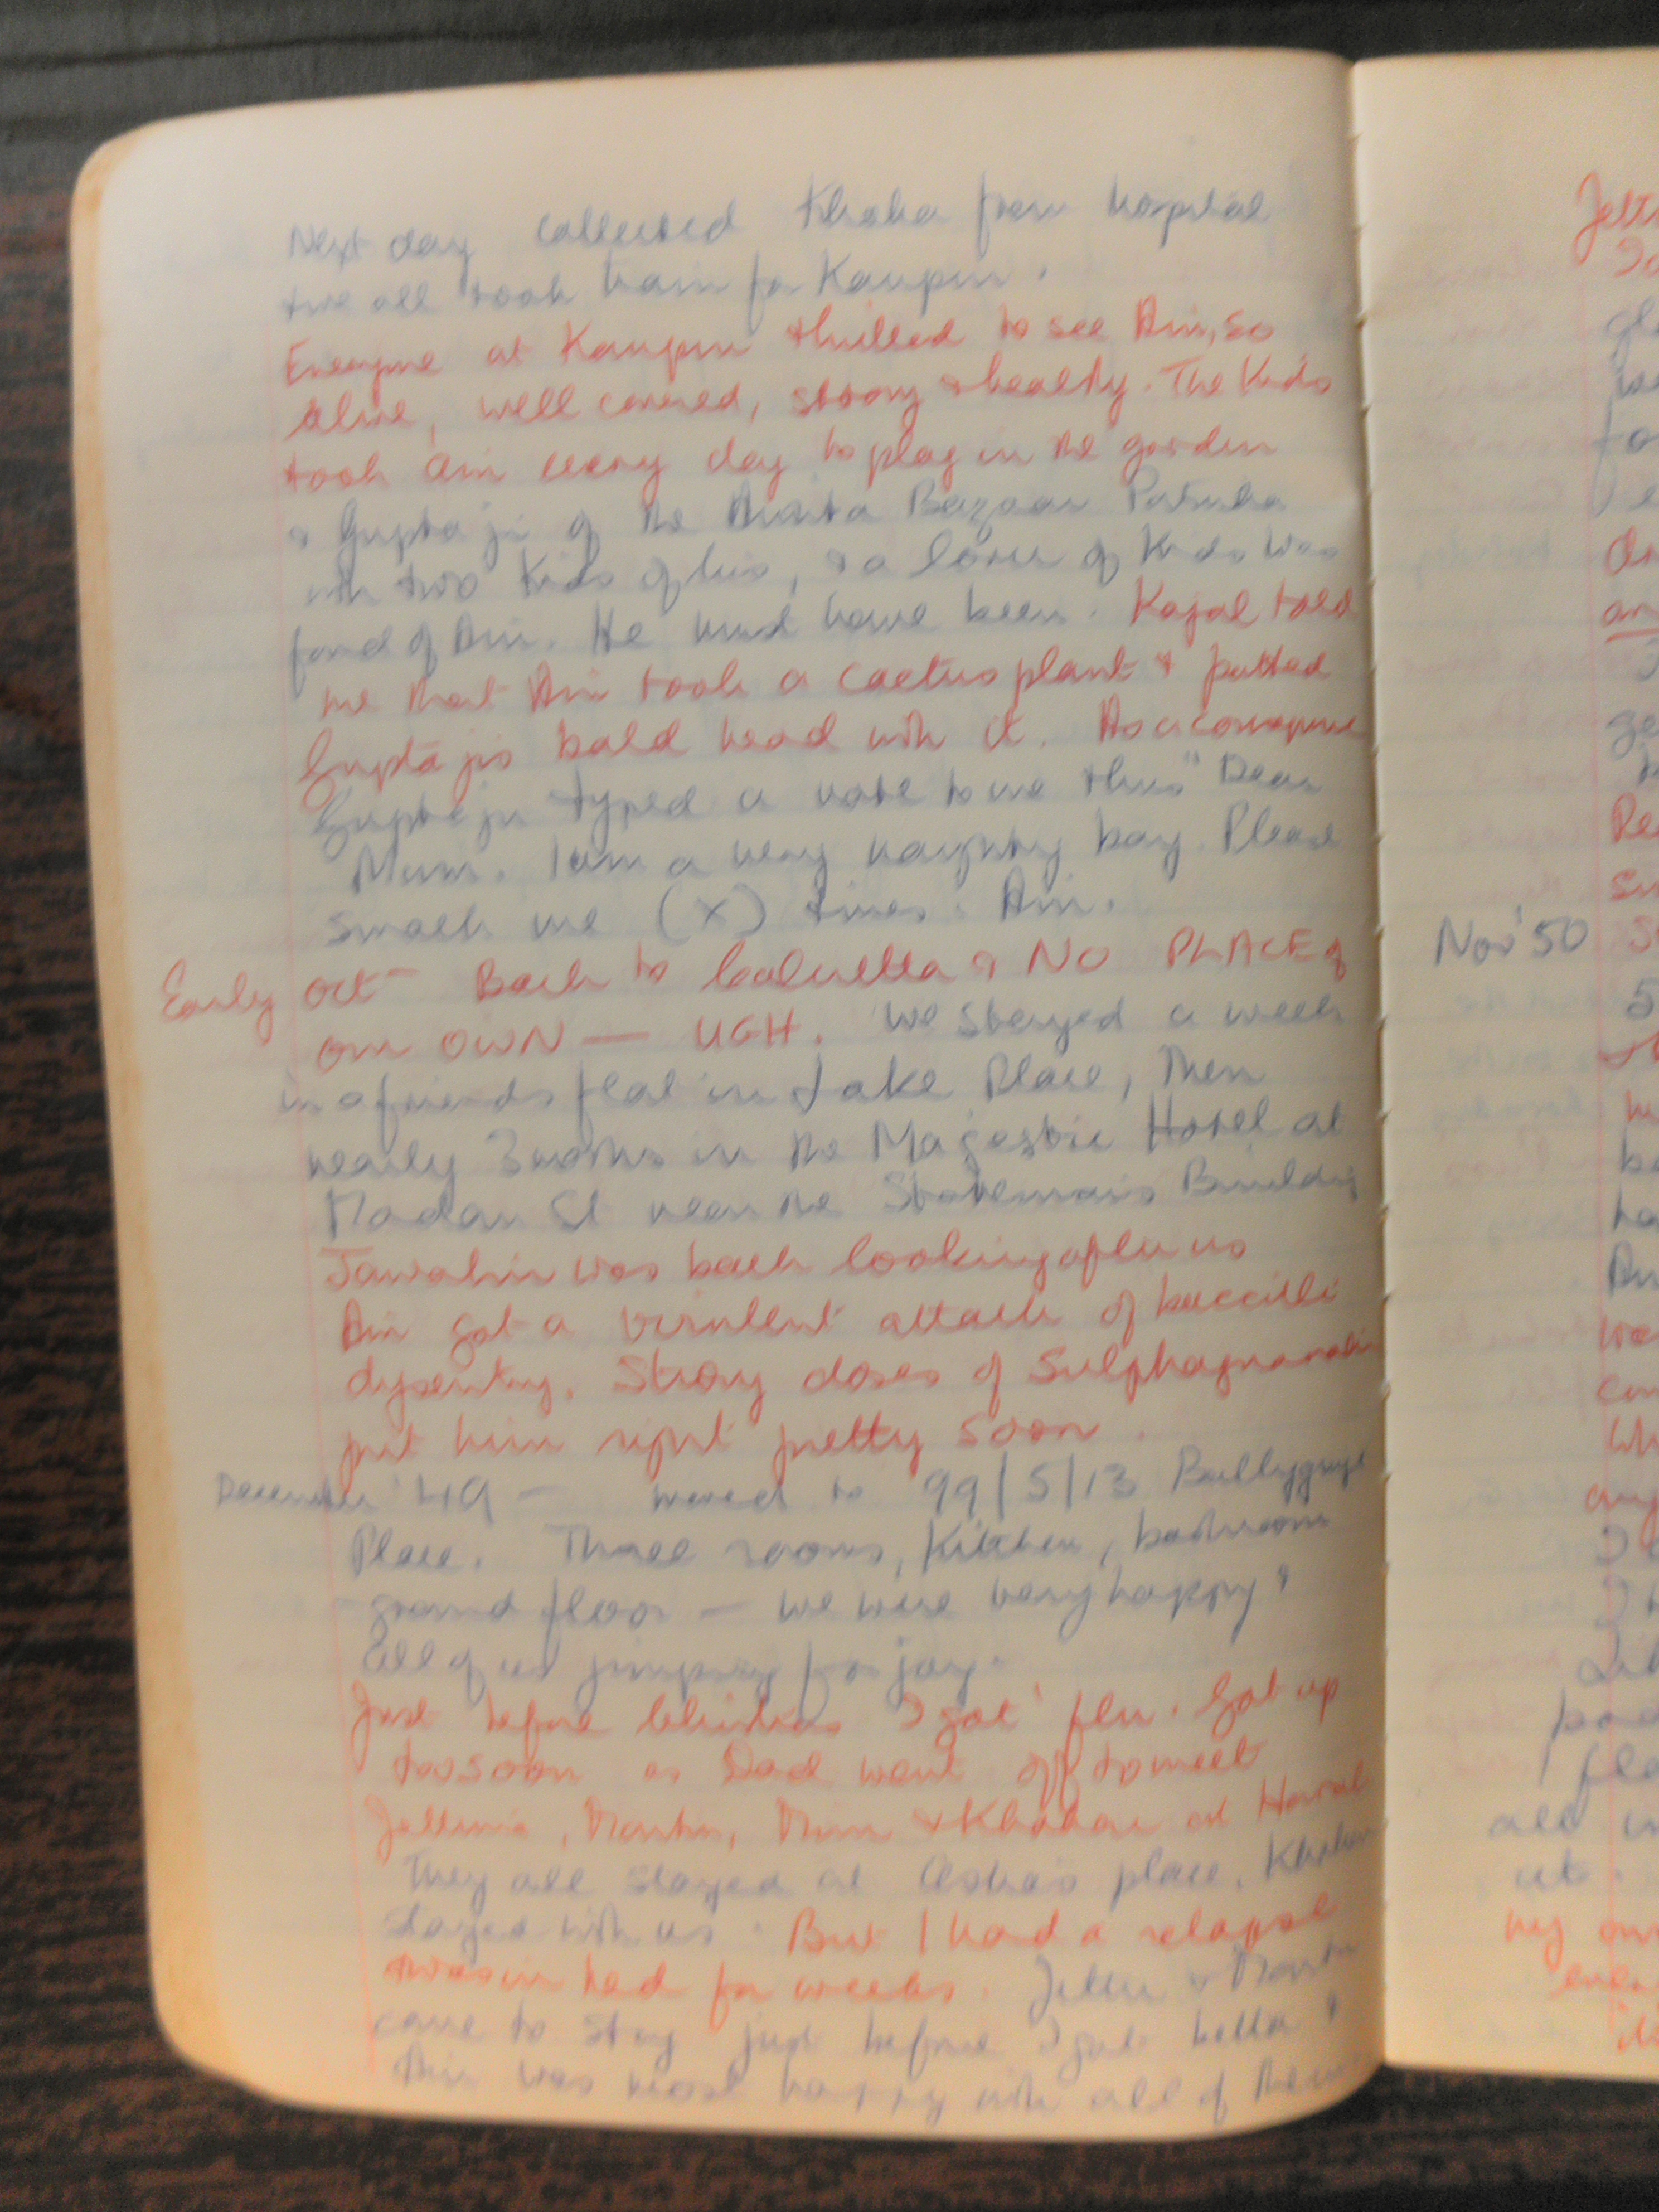 Next day collected Khoka from hospital
& we all took train for Kanpur.
Everyone at Kanpur thrilled to see Ain, so
alive, well covered, strong & healthy. The Kids
took Ain every day to play in the garden
& Guptaji of the Amrita Bazaar Patrika
with two Kids of his, & a lover of Kids was
fond of Ain. He must have been. Kajal told
me that Ain took a cactus plant & patted
Guptajis bald head with it. As a
Guptaji typed a note to me thus "Dear
Mum. I am a very naughty boy. Please
smack me (x) times. Ain.
Early Oct - Back to Calcutta & NO PLACE of
our OWN — UGH. We stayed a week
in a friends flat in Lake Place, Then
nearly 3 months in the Majestic Hotel at
Madan St near the Statesmans Building
Jawahir was back looking after us
Ain got a virulent attack of baccilli
dysentry. Strong doses of
put him right pretty soon.
December '49 - moved to 99/5/13 Ballygunge
Place. Three rooms, Kitchen, bathroom
ground floor — we were very happy &
all of us jumping for joy.
Just before Christmas I got flu. Got up
too soon as Dad went off to meet
& at
They all stayed at place,
stayed with us. But I had a relapse
& was in bed for weeks. &
came to stay just before I got better &
Ain was most happy with all of them
Nov '50